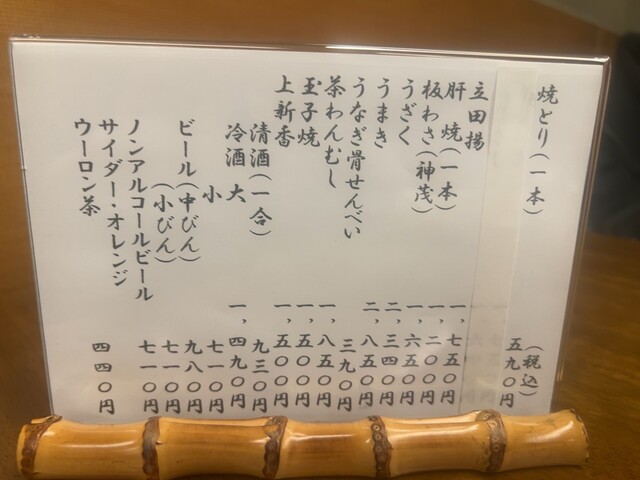 焼とり(一本) (税込) 五九〇円
立田揚 一、七五〇円
肝焼(一本) 一、二〇〇円
板わさ(神茂) 一、六五〇円
うざく 二、三四〇円
うまき 二、八五〇円
うなぎ骨せんべい 三九〇円
茶わんむし 一、八五〇円
玉子焼 一、五〇〇円
上新香 一、五〇〇円
清酒(一合) 九三〇円
冷酒 大 一、四九〇円
小 七一〇円
ビール(中びん) 九八〇円
(小びん) 七一〇円
ノンアルコールビール 七一〇円
サイダー・オレンジ
ウーロン茶 四四〇円